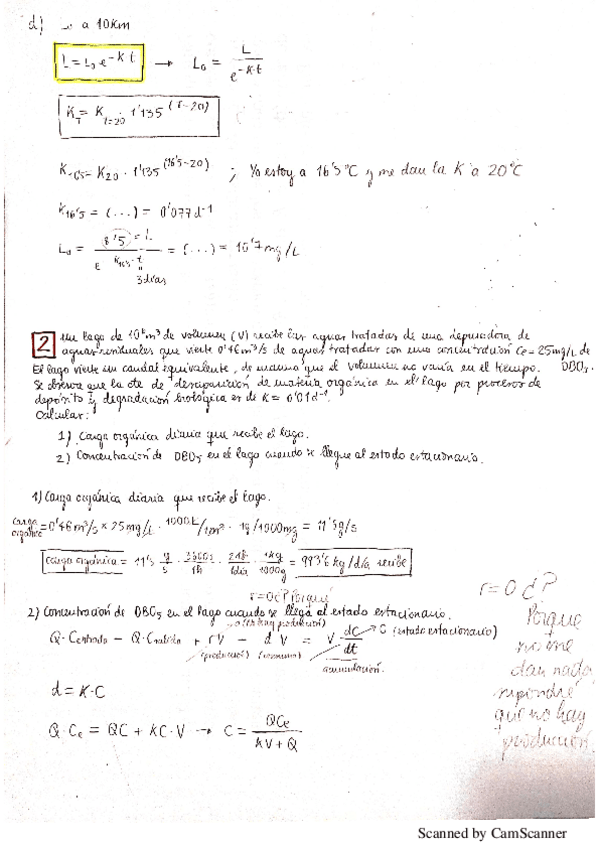 d) L₀ a 10km
L = L₀ e^-k·t → L₀ = L / e^-k·t
K_T = K_T=20 · 1'135^(T-20)
K₁₆'₅ = K₂₀ · 1'135^(16'5-20) ; Yo estoy a 16'5 °C y me dan la K a 20°C
K₁₆'₅ = (...) = 0'077 d⁻¹
L₀ = 8'5 = L / e^-K₁₆'₅·t = (...) = 10'7 mg/L
3 días
2 Un lago de 10⁸ m³ de volumen (V) recibe las aguas tratadas de una depuradora de
aguas residuales que vierte 0'46 m³/s de aguas tratadas con una concentración Ce = 25mg/L de
El lago vierte un caudal equivalente, de manera que el volumen no varía en el tiempo. DBO₅.
Se observa que la cte de desaparición de materia orgánica en el lago por procesos de
depósito y degradación biológica es de K = 0'01 d⁻¹.
Calcular:
1) Carga orgánica diaria que recibe el lago.
2) Concentración de DBO₅ en el lago cuando se llegue al estado estacionario.
1) Carga orgánica diaria que recibe el lago.
Carga orgánica = 0'46 m³/s × 25 mg/L · 1000L/1m³ · 1g/1000mg = 11'5 g/s
Carga orgánica = 11'5 g/s · 3600s/1h · 24h/1día · 1kg/1000g = 993'6 kg/día recibe
r=0 ¿? Porqué
2) Concentración de DBO₅ en el lago cuando se llega al estado estacionario.
0 (no hay producción)
Q·Centrada − Q·Csalida + rV − dV = V dC/dt → 0 (estado estacionario)
(producción) (consumo)
acumulación.
d = K·C
Q·Ce = QC + KC·V → C = QCe / KV + Q
r=0 ¿?
Porque
no me
dan nada,
supondré
que no hay
producción.
Scanned by CamScanner